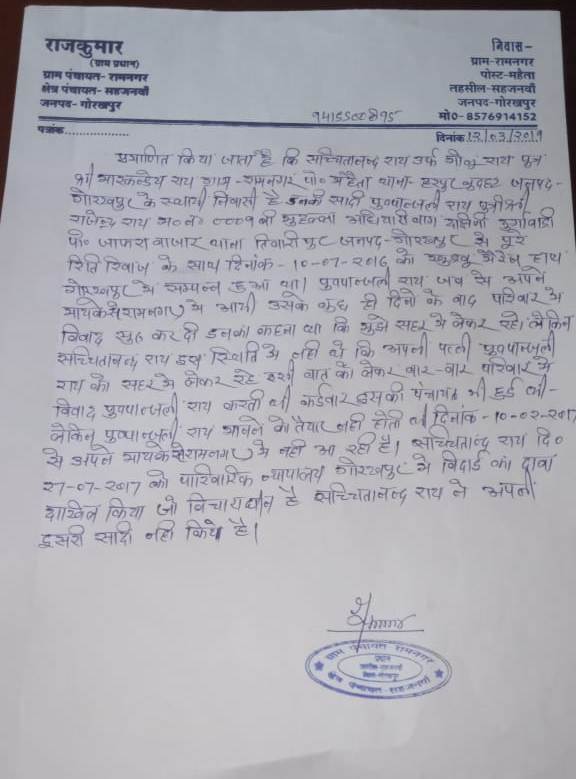 राजकुमार
(ग्राम प्रधान)
ग्राम पंचायत- रामनगर
क्षेत्र पंचायत- सहजनवाँ
जनपद- गोरखपुर
निवास-
ग्राम-रामनगर
पोस्ट-महैता
तहसील-सहजनवाँ
जनपद-गोरखपुर
मो0- 8576914152
पत्रांक
दिनांक 12/03/2019
प्रमाणित किया जाता है कि सच्चितानन्द राय उर्फ राय पुत्र
श्री मारकण्डेय राय ग्राम-रामनगर पो० महैता थाना- हरपुर बुदहट जनपद-
गोरखपुर के स्थायी निवासी है इनकी सादी पुष्पान्जली राय पुत्री श्री
राजेन्द्र राय म०न० मुहल्ला दुर्गाबाड़ी
पो० जाफरा बाजार थाना तिवारीपुर जनपद-गोरखपुर मे पुरे
रिति रिवाज के साथ दिनांक-10-07-2016 को मैरेज हाल
गोरखपुर मे सम्पन्न हुआ था। पुष्पान्जली राय जब से अपने
मायके से रामनगर मे आयी उसके कुछ ही दिनो के बाद परिवार मे
विवाद सुरु कर दी इनका कहना था कि मुझे सहर मे लेकर रहो। लेकिन
सच्चितानन्द राय इस स्थिति मे नही थे कि अपनी पत्नी पुष्पान्जली
राय को सहर मे लेकर रहे इसी बात को लेकर बार-बार परिवार मे
विवाद पुष्पान्जली राय करती थी कईबार इसकी पंचायत भी हुई थी-
लेकिन पुष्पान्जली राय मानने को तैयार नही होती थी दिनांक-10-02-2017
से अपने मायके से रामनगर मे नही आ रही है। सच्चितानन्द राय दि०
27-07-2017 को पारिवारिक न्यायालय गोरखपुर मे विदाई का दावा
दाखिल किया जो विचाराधीन है सच्चितानन्द राय ने अपनी
दुसरी सादी नही किये है।
ग्राम पंचायत रामनगर
प्रधान
क्षेत्र पंचायत-सहजनवाँ